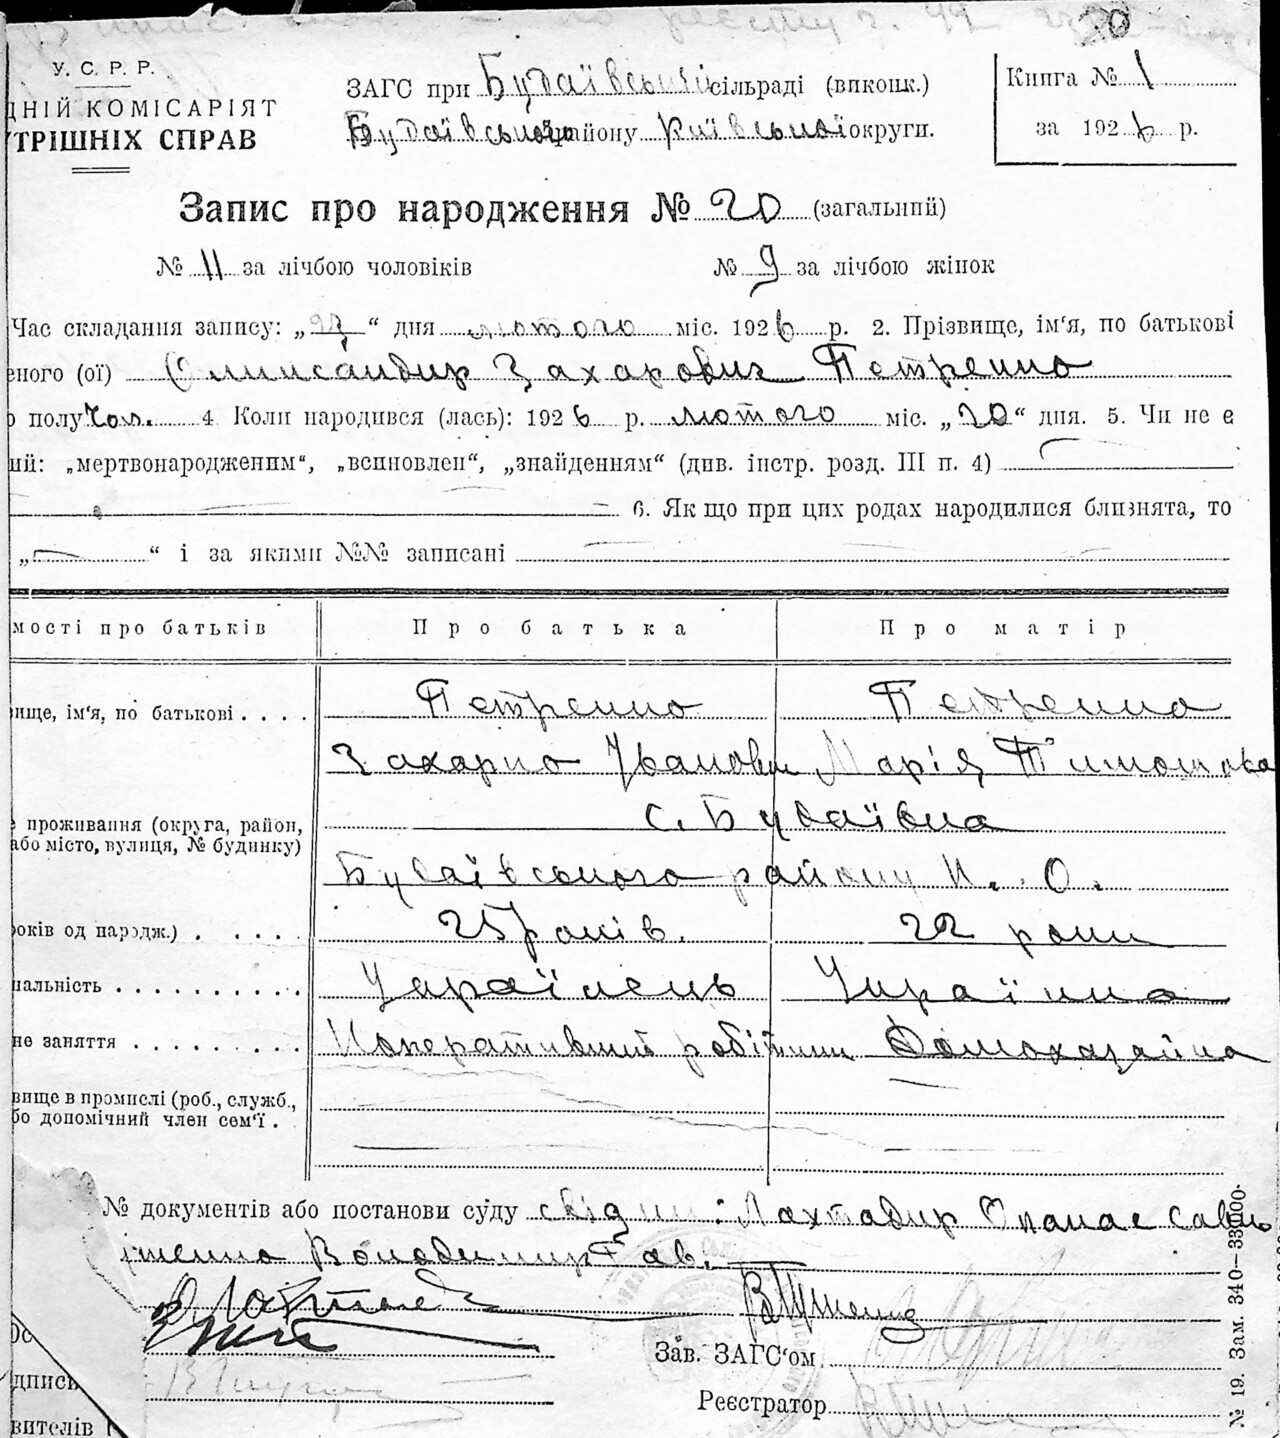 по реєстру ч. 44
20
У. С. Р. Р.
ДНІЙ КОМІСАРІЯТ
УТРІШНІХ СПРАВ
ЗАГС при Будаївській сільраді (виконк.)
Будаївського району Київської округи.
Книга № 1
за 1926 р.
Запис про народження № 20 (загальний)
№ 11 за лічбою чоловіків № 9 за лічбою жінок
Час складання запису: „27“ дня лютого міс. 1926 р. 2. Прізвище, ім'я, по батькові
еного (ої) Олександир Захарович Петренко
о полу Чол. 4 Коли народився (лась): 1926 р. лютого міс. „20“ дня. 5. Чи не є
ий: „мертвонародженим“, „всиновлен“, „знайденням“ (див. інстр. розд. III п. 4)
6. Як що при цих родах народилися близнята, то
„ “ і за якими №№ записані
мості про батьків Про батька Про матір
вище, ім'я, по батькові . . . . Петренко Петренко
Захарко Іванови Марія Тимошова
с. Будаївка
е проживання (округа, район,
або місто, вулиця, № будинку)
Будаївського району К. О.
років од народж.) . . . . . 25 років. 22 роки
нальність . . . . . . . . . . Українець Українка
не заняття . . . . . . . . . Кооперативний робітник Домохазайка
вище в промислі (роб., служб.,
бо допоміжний член сем'ї .
№ документів або постанови суду свідки: Лахтадир Опанас Сав
Володимир Сав.
Зав. ЗАГС'ом
Реєстратор
дписи
вителів
№ 19. Зам. 340—33000.